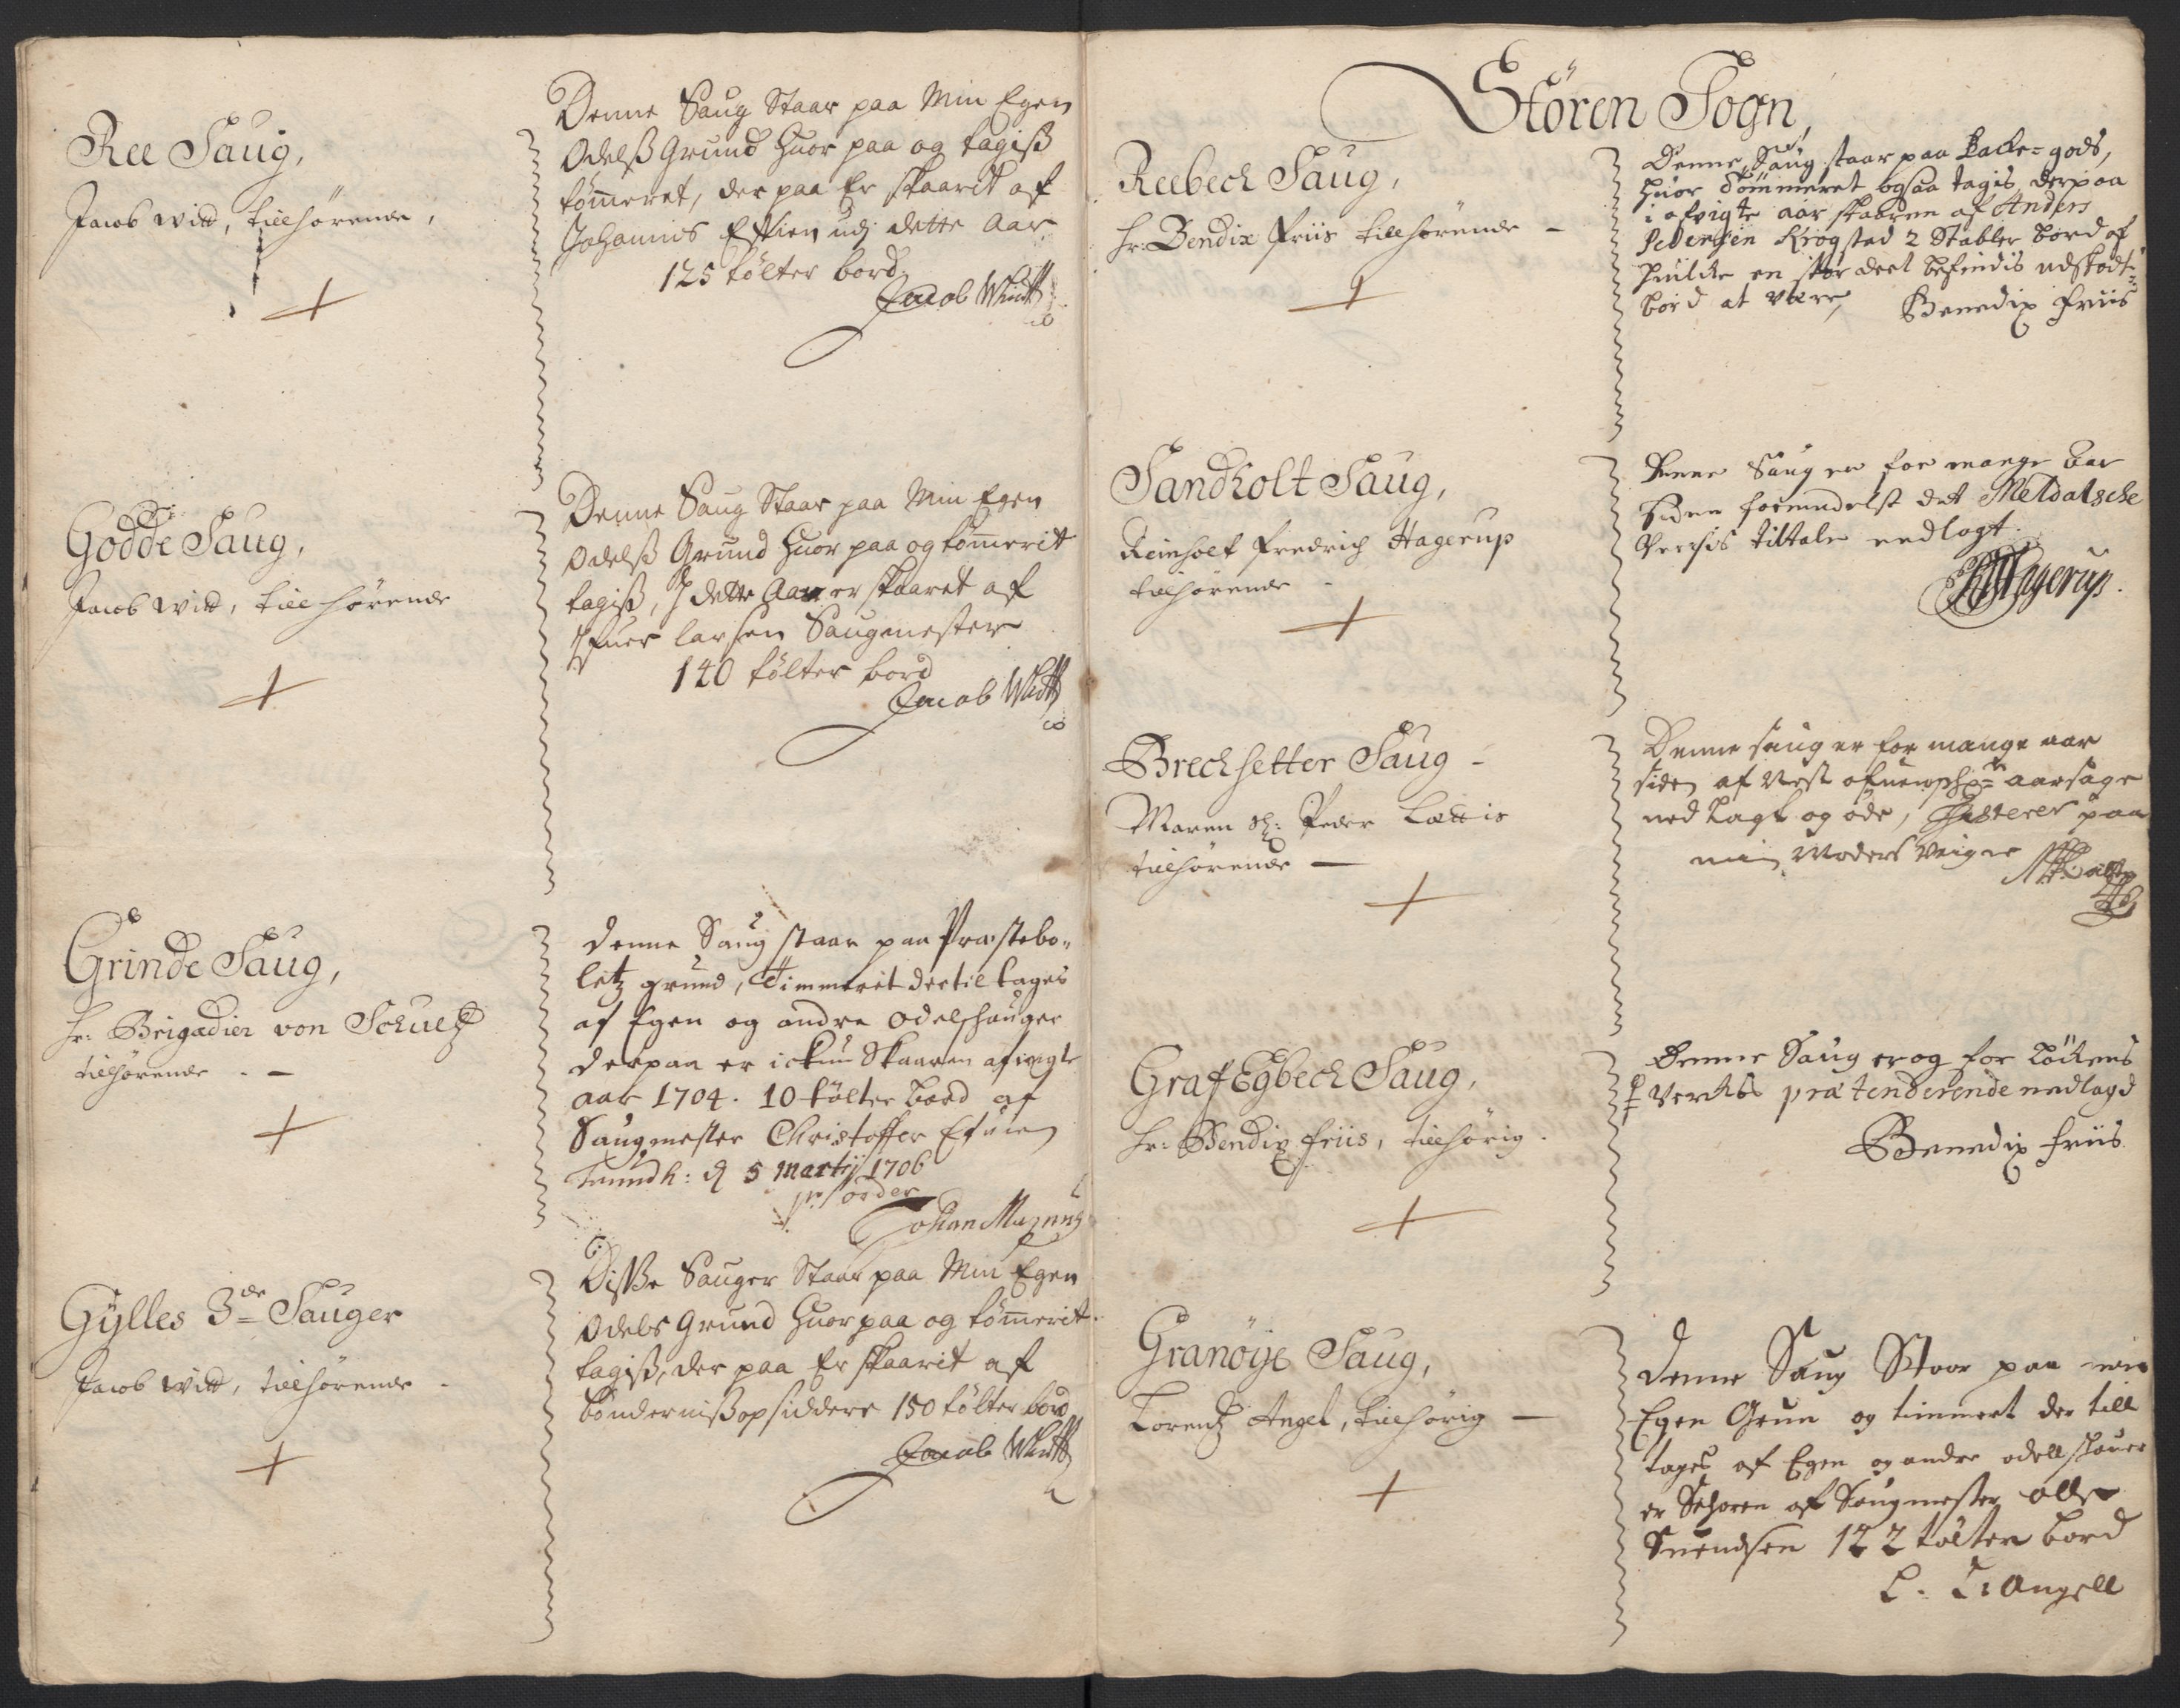 Ree Saug,
Jacob Witt, tilhørende,
Denne Saug Staar paa Min Egen
Odelß Grund Huor paa og tagiß
tømeret, der paa Er skaarit af
Johannis Efvien udj dette Aar
125 tølter bord
Jacob Witt
Godde Saug,
Jacob Witt, tilhørende
Denne Saug Staar paa Min Egen
Odelß Grund Huor paa og tømerit
tagiß, J dette Aar er skaaret af
Jfuer larsen Saugmester
140 tølter bord
Jacob Witt
Grinde Saug,
hr: Brigadier von Schultz
tilhørende
denne Saug staar paa Præstebo-
letz grund, Timmerit dertil tages
af Egen og andre odelshauger
derpaa er ickun Skaaren afvigte
aar 1704. 10 tølter bord af
Saugmester Christoffer Efvien
Trundh: d 5 Martij 1706
pr order
Johan Magnus
Gylles 3de Sauger
Jacob Witt, tilhørende
Disße Sauger Staar paa Min Egen
Odels Grund Huor paa og tømerit
tagiß, der paa Er skaarit af
bønderniß opsiddere 150 tølter bord
Jacob Witt
Støren Sogn,
Reebech Saug,
hr: Bendix Friis tilhørende
Denne Saug staar paa Backe-gods,
huor Tømmeret ogsaa tagis, derpaa
i afvigte aar skaaren af Anders
Pedersen Krogstad 2 Stabler bord af
huilke en stor deel befindis udskodt-
bord at være,
Benedix Friis
Sandholt Saug,
Reinholt Fredrich Hagerup
tilhørende
Denne Saug er for mange Aar
siden formedelst det Meldalsche
Verchis tiltale nedlagt.
Hagerup.
Brechsetter Saug
Maren Sl: Peder Lættis
tilhørende
Denne saug er for mange aar
siden af aarsage
ned lagt og øde, paa
min Moders Veigne
Graf Egbech Saug,
hr: Bendix Friis, tilhørig
Denne Saug er og for Løckens
Verches prætenderende nedlagd
Benedix Friis
Granøye Saug,
Lorentz Angel, tilhørig
denne Saug Staar paa min
Egen Grun og timmert der till
tages af Egen og andre odellskouer
er Schoren af Saugmester olle
Suendsen 122 tølter bord
L. Angell